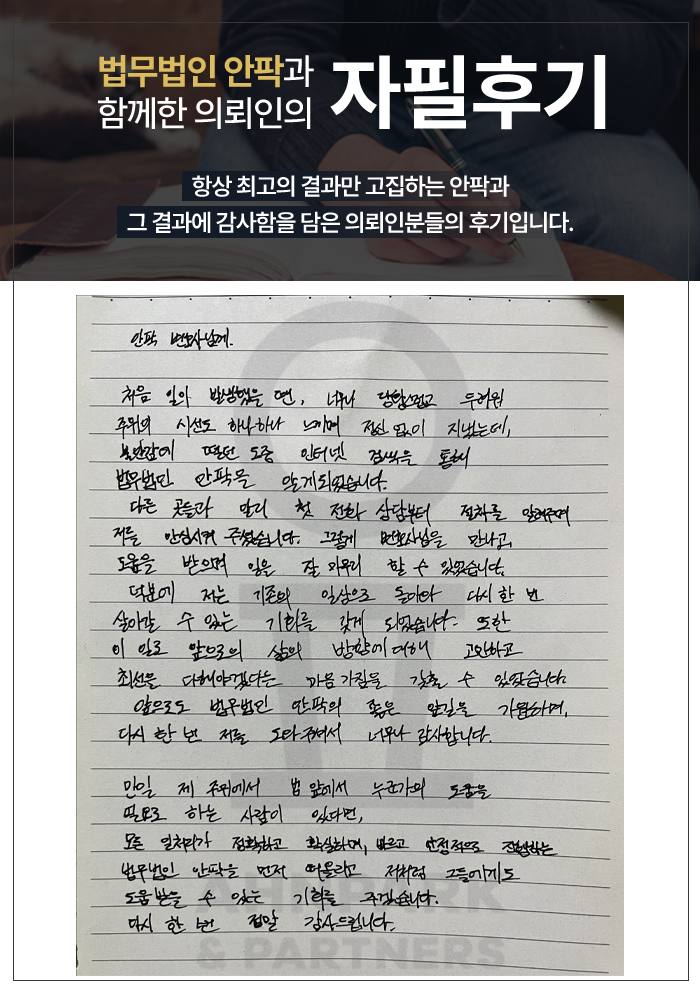 법무법인 안팍과
함께한 의뢰인의
자필후기
항상 최고의 결과만 고집하는 안팍과
그 결과에 감사함을 담은 의뢰인분들의 후기입니다.
안팍 변호사님께.
처음 일이 발생했을 땐, 너무나 당황스럽고 두려워
주위의 시선도 하나하나 느끼며 정신 없이 지냈는데,
불안감에 떨던 도중 인터넷 검색을 통해
법무법인 안팍을 알게되었습니다.
다른 곳들과 달리 첫 전화 상담부터 절차를 알려주며
저를 안심시켜 주셨습니다. 그렇게 변호사님을 만나고,
도움을 받으며 일을 잘 마무리 할 수 있었습니다.
덕분에 저는 기존의 일상으로 돌아와 다시 한 번
살아갈 수 있는 기회를 갖게 되었습니다. 또한
이 일로 앞으로의 삶의 방향에 대해 고민하고
최선을 다해야겠다는 마음가짐을 갖출 수 있었습니다.
앞으로도 법무법인 안팍의 좋은 앞길을 기원하며,
다시 한 번 저를 도와주셔서 너무나 감사합니다.
만일 제 주위에서 법 앞에서 누군가의 도움을
필요로 하는 사람이 있다면,
모든 일처리가 정확하고 확실하며, 빠르고 안정적으로 진행하는
법무법인 안팍을 먼저 떠올리고 저처럼 그들에게도
도움받을 수 있는 기회를 주겠습니다.
다시 한 번 정말 감사드립니다.
& PARTNERS